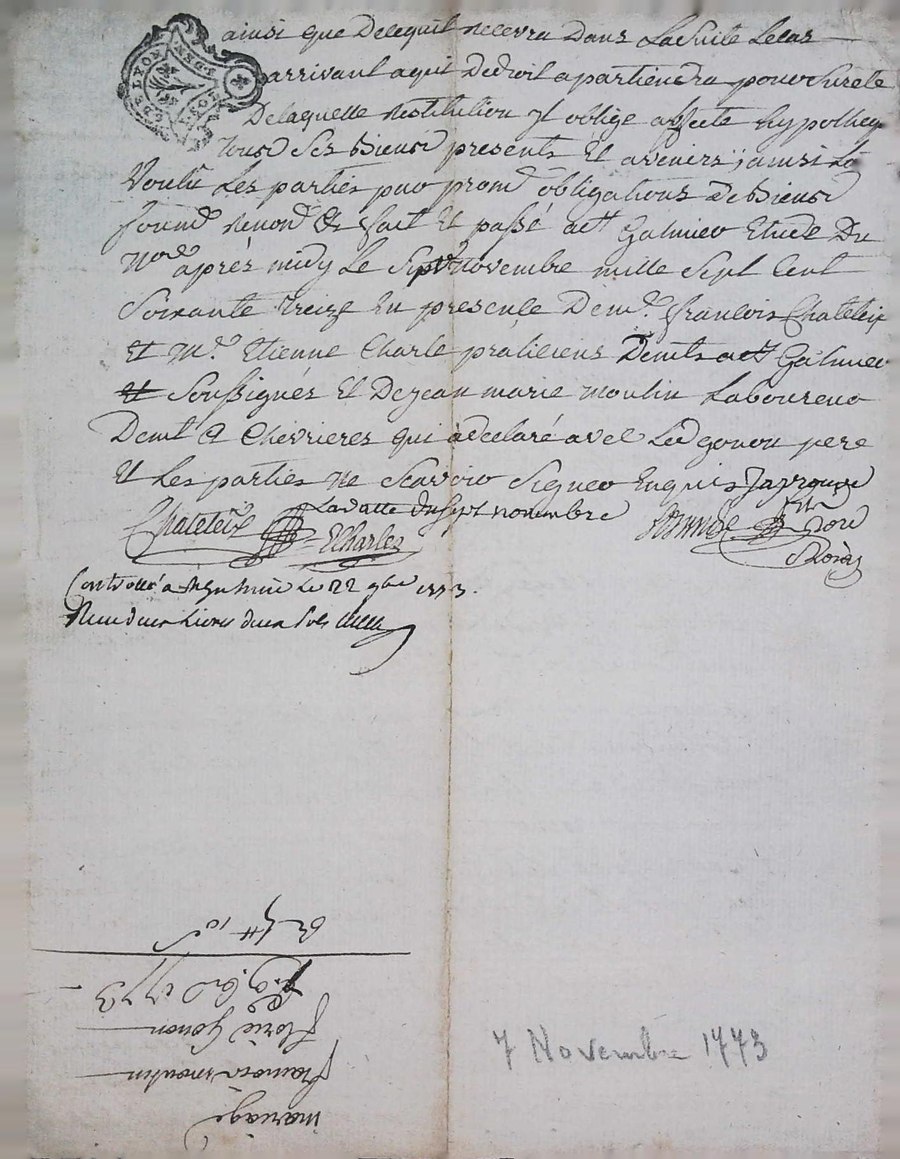 ainsi que Dece quil recevra Dans La Suite Lecas
arrivant aqui Dedroit apartiendra pour Sureté
Delaquelle restitution yl oblige affecte hypotheq
tous Ses biens presents Et avenirs; ainsi L'ont
Voulu Les parties par prom obligations Debiens
soum renon Et fait Et passé a St Galmier Etude Du
Nore après midy Le Sept novembre mille Sept Cent
Soixante treize En presence De me. françois Chateleix
Et Me. Etienne Charle praticiens Demts a St Galmier
Et Soussignés Et De jean marie moulin Laboureur
Demt a Chevrieres qui adeclaré avec Led gonon pere
Et Les parties ne Scavoir Signer Enquis Japrouve
Ladatte Du Sept novembre
Chateleix ECharles
Controllé a St Galmier Le 22 9bre 1773.
DE LYON
mariage
francois moulin
florie Gonon
1773
7 Novembre 1773